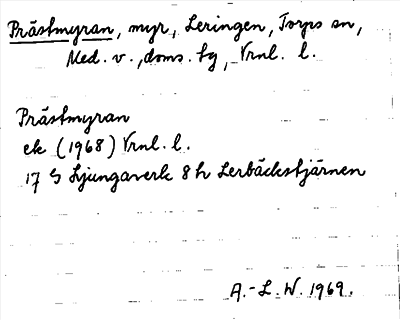 Prästmyran, myr, Leringen, Torps sn,
Med. v., doms. tg, Vrnl. l.
Prästmyran
ek (1968) Vrnl. l.
17 G Ljungaverk 8 h Lerbäckstjärnen
A.-L. W. 1969.